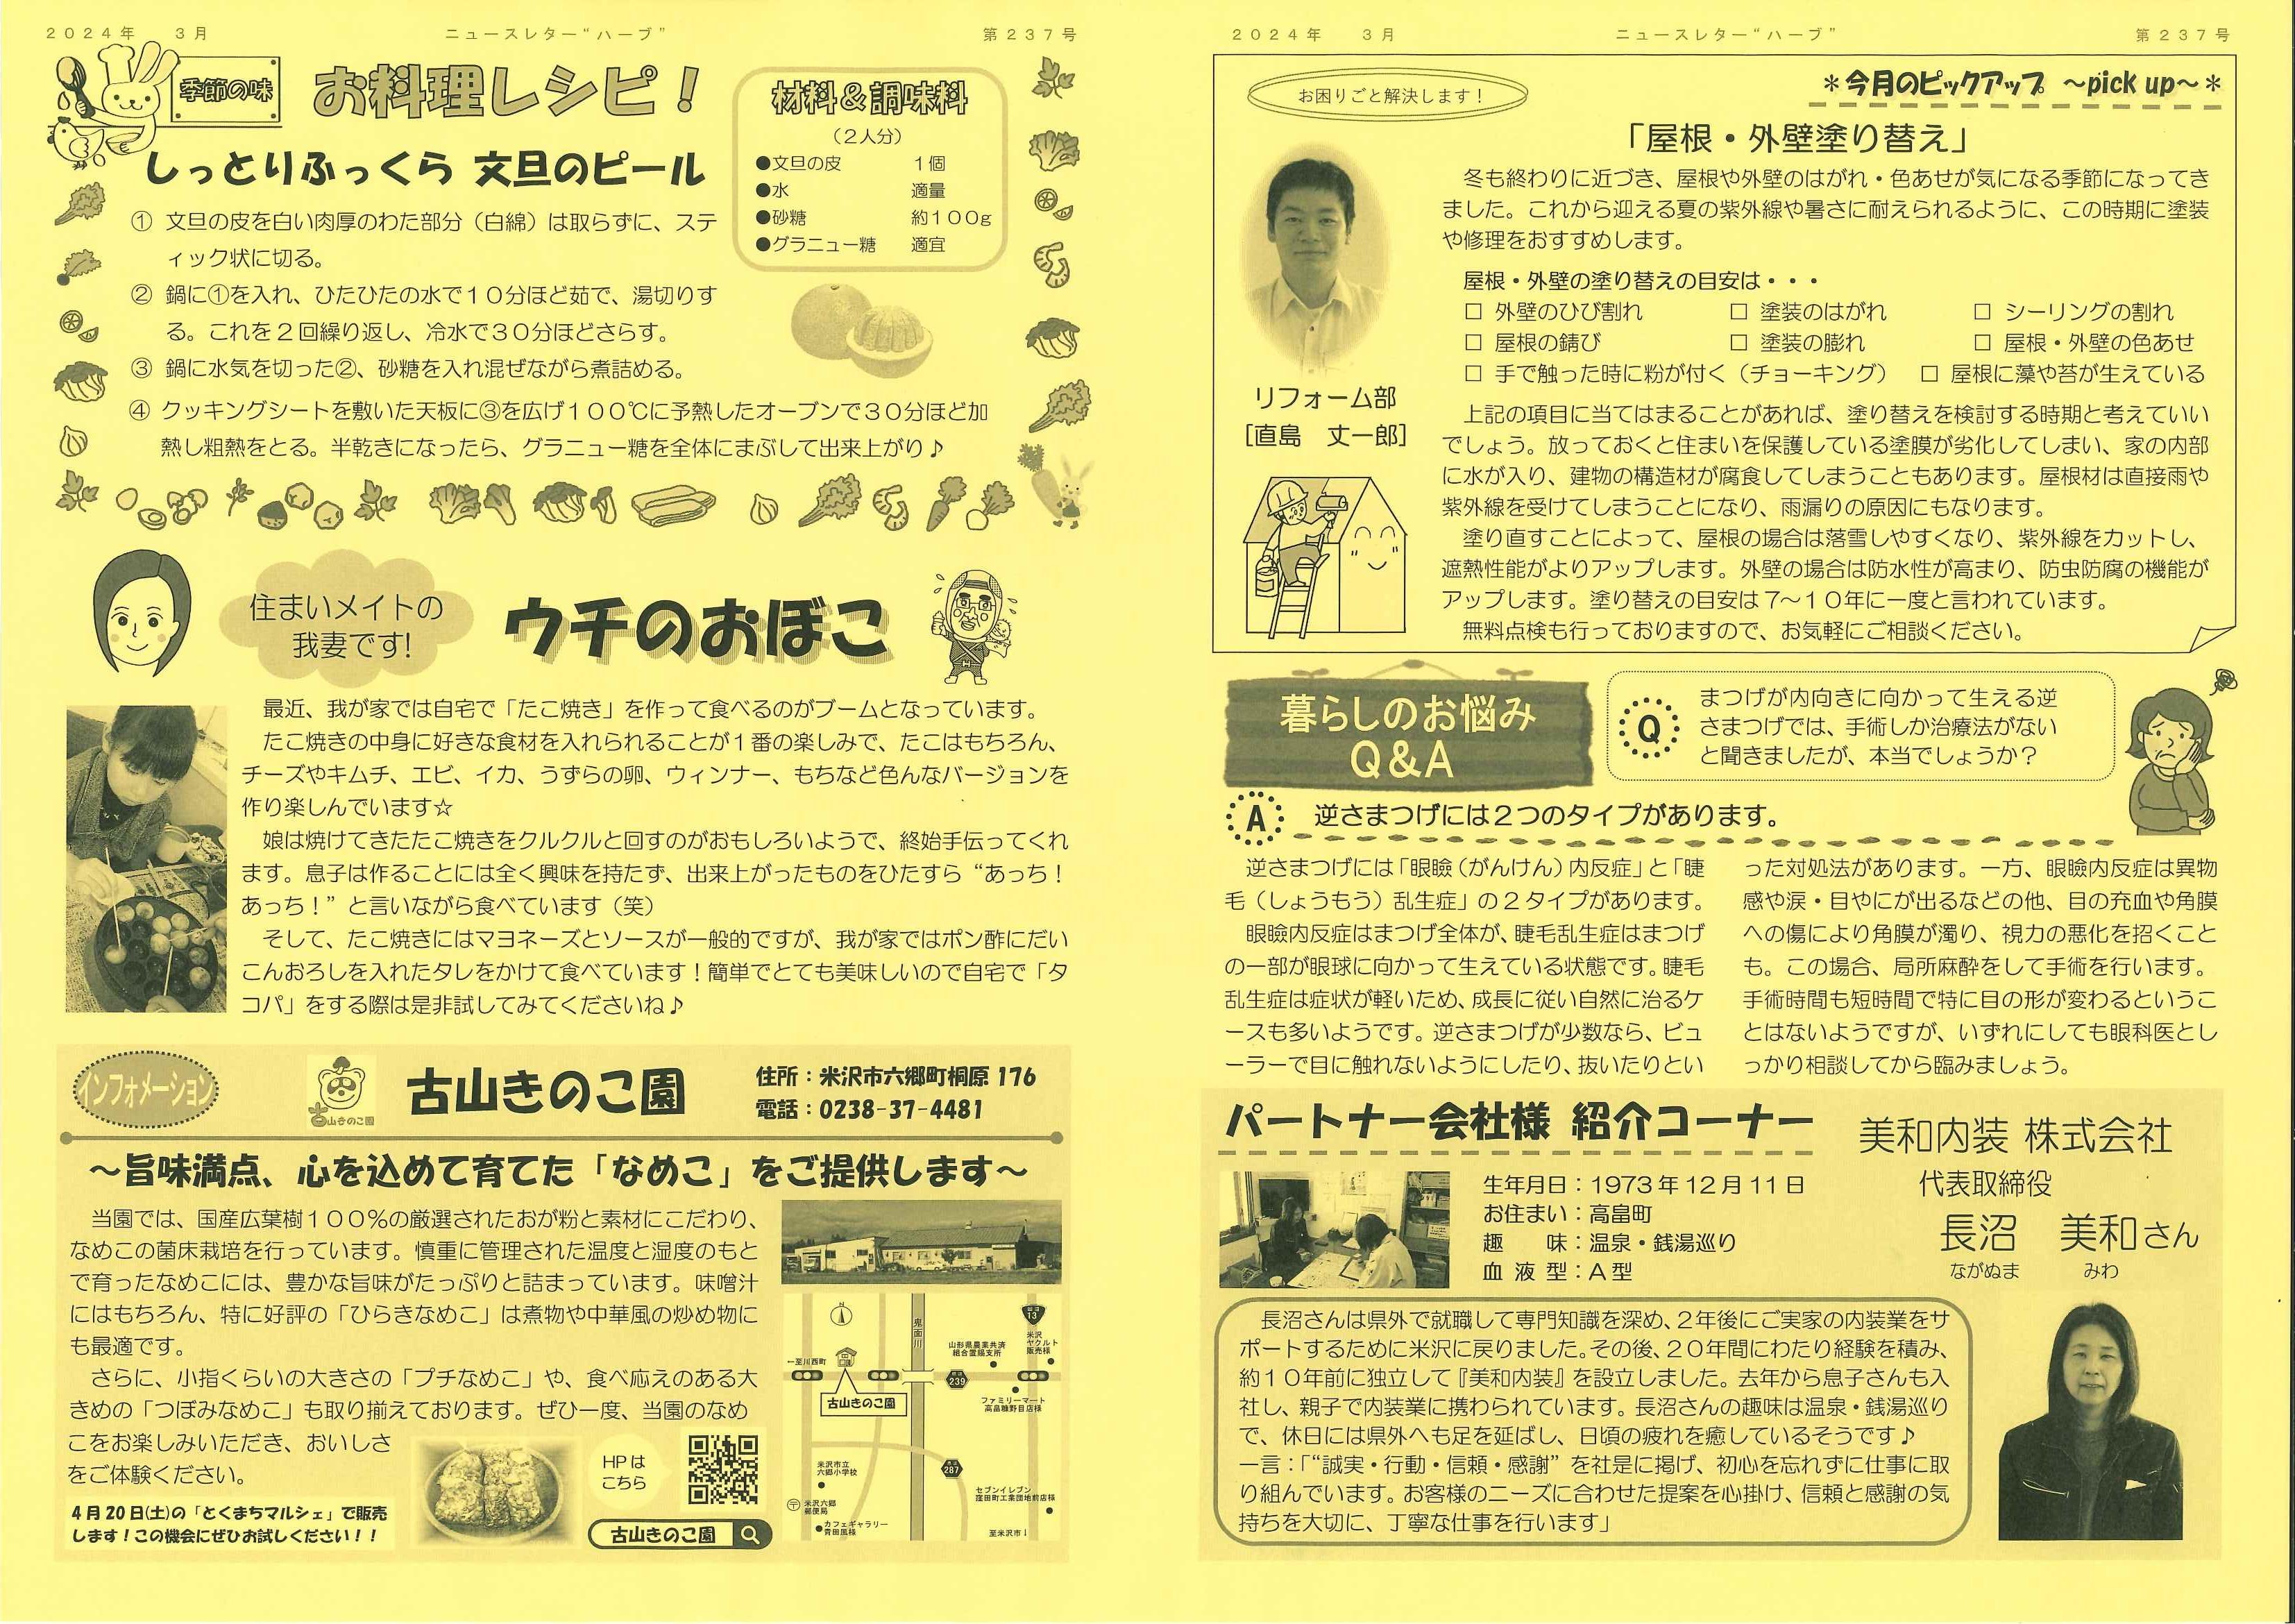 2024年　3月　ニュースレター“ハーブ”　第237号
季節の味
お料理レシピ！
しっとりふっくら 文旦のピール
材料＆調味料
（2人分）
●文旦の皮　1個
●水　適量
●砂糖　約100g
●グラニュー糖　適宜
① 文旦の皮を白い肉厚のわた部分（白綿）は取らずに、ステ
ィック状に切る。
② 鍋に①を入れ、ひたひたの水で10分ほど茹で、湯切りす
る。これを2回繰り返し、冷水で30分ほどさらす。
③ 鍋に水気を切った②、砂糖を入れ混ぜながら煮詰める。
④ クッキングシートを敷いた天板に③を広げ100℃に予熱したオーブンで30分ほど加
熱し粗熱をとる。半乾きになったら、グラニュー糖を全体にまぶして出来上がり♪
住まいメイトの
我妻です!
ウチのおぼこ
最近、我が家では自宅で「たこ焼き」を作って食べるのがブームとなっています。
たこ焼きの中身に好きな食材を入れられることが1番の楽しみで、たこはもちろん、
チーズやキムチ、エビ、イカ、うずらの卵、ウィンナー、もちなど色んなバージョンを
作り楽しんでいます☆
娘は焼けてきたたこ焼きをクルクルと回すのがおもしろいようで、終始手伝ってくれ
ます。息子は作ることには全く興味を持たず、出来上がったものをひたすら“あっち！
あっち！”と言いながら食べています（笑）
そして、たこ焼きにはマヨネーズとソースが一般的ですが、我が家ではポン酢にだい
こんおろしを入れたタレをかけて食べています！簡単でとても美味しいので自宅で「タ
コパ」をする際は是非試してみてくださいね♪
インフォメーション
古山きのこ園
古山きのこ園
住所：米沢市六郷町桐原 176
電話：0238-37-4481
～旨味満点、心を込めて育てた「なめこ」をご提供します～
当園では、国産広葉樹100％の厳選されたおが粉と素材にこだわり、
なめこの菌床栽培を行っています。慎重に管理された温度と湿度のもと
で育ったなめこには、豊かな旨味がたっぷりと詰まっています。味噌汁
にはもちろん、特に好評の「ひらきなめこ」は煮物や中華風の炒め物に
も最適です。
さらに、小指くらいの大きさの「プチなめこ」や、食べ応えのある大
きめの「つぼみなめこ」も取り揃えております。ぜひ一度、当園のなめ
こをお楽しみいただき、おいしさ
をご体験ください。
4月20日(土)の「とくまちマルシェ」で販売
します！この機会にぜひお試しください！！
HPは
こちら
古山きのこ園
鬼面川
13
米沢
ヤクルト
販売様
山形県農業共済
組合置賜支所
←至川西町
239
古山きのこ園
ファミリーマート
高畠糠野目店様
米沢市立
六郷小学校
287
セブンイレブン
窪田町工業団地前店様
米沢六郷
郵便局
カフェギャラリー
青田風様
至米沢市↓
2024年　3月　ニュースレター“ハーブ”　第237号
お困りごと解決します！
＊今月のピックアップ　～pick up～＊
「屋根・外壁塗り替え」
冬も終わりに近づき、屋根や外壁のはがれ・色あせが気になる季節になってき
ました。これから迎える夏の紫外線や暑さに耐えられるように、この時期に塗装
や修理をおすすめします。
屋根・外壁の塗り替えの目安は・・・
□ 外壁のひび割れ　□ 塗装のはがれ　□ シーリングの割れ
□ 屋根の錆び　□ 塗装の膨れ　□ 屋根・外壁の色あせ
□ 手で触った時に粉が付く（チョーキング）　□ 屋根に藻や苔が生えている
リフォーム部
[直島　丈一郎]
上記の項目に当てはまることがあれば、塗り替えを検討する時期と考えていい
でしょう。放っておくと住まいを保護している塗膜が劣化してしまい、家の内部
に水が入り、建物の構造材が腐食してしまうこともあります。屋根材は直接雨や
紫外線を受けてしまうことになり、雨漏りの原因にもなります。
塗り直すことによって、屋根の場合は落雪しやすくなり、紫外線をカットし、
遮熱性能がよりアップします。外壁の場合は防水性が高まり、防虫防腐の機能が
アップします。塗り替えの目安は7～10年に一度と言われています。
無料点検も行っておりますので、お気軽にご相談ください。
暮らしのお悩み
Q&A
Q
まつげが内向きに向かって生える逆
さまつげでは、手術しか治療法がない
と聞きましたが、本当でしょうか？
A　逆さまつげには2つのタイプがあります。
逆さまつげには「眼瞼（がんけん）内反症」と「睫
毛（しょうもう）乱生症」の2タイプがあります。
眼瞼内反症はまつげ全体が、睫毛乱生症はまつげ
の一部が眼球に向かって生えている状態です。睫毛
乱生症は症状が軽いため、成長に従い自然に治るケ
ースも多いようです。逆さまつげが少数なら、ビュ
ーラーで目に触れないようにしたり、抜いたりとい
った対処法があります。一方、眼瞼内反症は異物
感や涙・目やにが出るなどの他、目の充血や角膜
への傷により角膜が濁り、視力の悪化を招くこと
も。この場合、局所麻酔をして手術を行います。
手術時間も短時間で特に目の形が変わるというこ
とはないようですが、いずれにしても眼科医とし
っかり相談してから臨みましょう。
パートナー会社様 紹介コーナー
美和内装 株式会社
代表取締役
長沼　美和さん
ながぬま　みわ
生年月日：1973年12月11日
お住まい：高畠町
趣　　味：温泉・銭湯巡り
血 液 型：A型
長沼さんは県外で就職して専門知識を深め、2年後にご実家の内装業をサ
ポートするために米沢に戻りました。その後、20年間にわたり経験を積み、
約10年前に独立して『美和内装』を設立しました。去年から息子さんも入
社し、親子で内装業に携わられています。長沼さんの趣味は温泉・銭湯巡り
で、休日には県外へも足を延ばし、日頃の疲れを癒しているそうです♪
一言：「“誠実・行動・信頼・感謝”を社是に掲げ、初心を忘れずに仕事に取
り組んでいます。お客様のニーズに合わせた提案を心掛け、信頼と感謝の気
持ちを大切に、丁寧な仕事を行います」